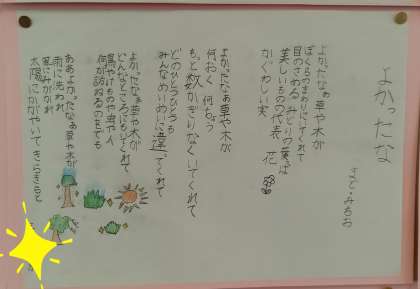 よかったなあ
まど・みちお
よかったなあ 草や木が
ぼくらのまわりにいてくれて
目のさめる みどりの葉っぱ
美しいものの代表 花
かぐわしい実
よかったなあ 草や木が
何おく 何ちょう
もっと数かぎりなくいてくれて
どのひとつひとつも
みんなめいめいに違っていてくれて
よかったなあ 草や木が
どんなところにもいてくれて
鳥やけものや虫や人
何が訪ねるのをでも
ああ よかったなあ 草や木が
雨に洗われ
風にみがかれ
太陽にかがやいて きらきらと